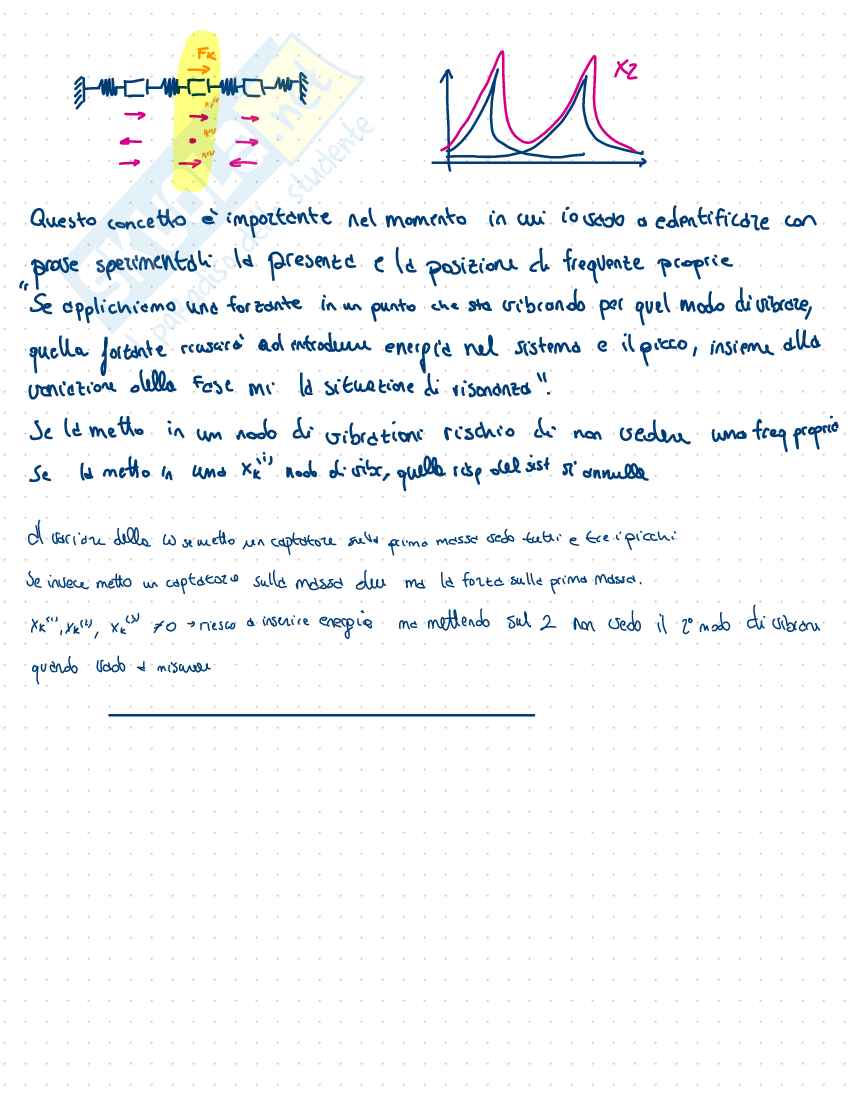 Fk
x2
Questo concetto è importante nel momento in cui io vado a edentificare con
prove sperimentali la presenza e la posizione di frequenze proprie
"Se applichiamo una forzante in un punto che sta vibrando per quel modo di vibrare,
quella forzante riuscirà ad introdurre energia nel sistema e il picco, insieme alla
variazione della fase mi la situazione di risonanza".
Se la metto in un nodo di vibrazioni rischio di non vedere una freq propria
Se la metto in una xk(i) nodo di vibr, quella risp del sist si annulla
Al variare della ω se metto un captatore sulla prima massa vedo tutti e tre i picchi
Se invece metto un captatore sulla massa due ma la forza sulla prima massa.
xk(1), xk(2), xk(3) ≠0 → riesco a inserire energia ma mettendo sul 2 non vedo il 2° modo di vibrare
quando vado a misurare
skuola.net
il paradiso dello studente